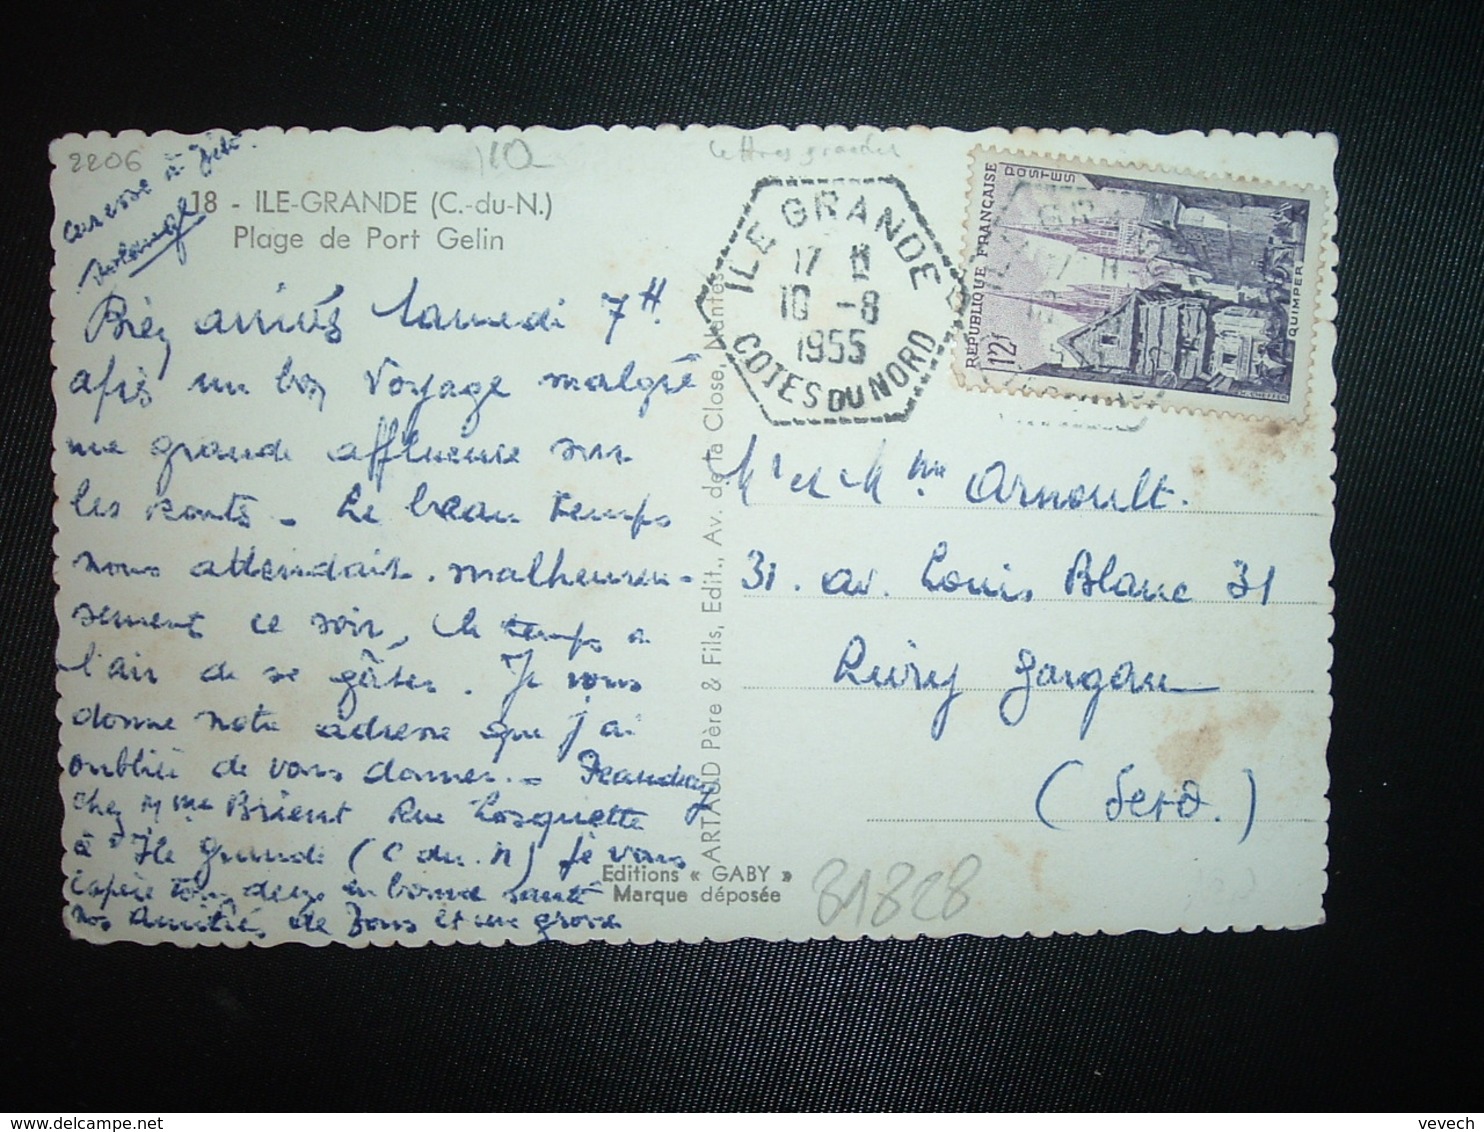 2206
18 - ILE-GRANDE (C.-du-N.)
Plage de Port Gelin
caresse à
Bien arrivés Samedi 7H
après un bon voyage malgré
une grande affluence sur
les routes - Le beau temps
nous attendait. malheureu-
sement ce soir, le temps a
l'air de se gâter. Je vous
donne notre adresse que j'ai
oublié de vous donner. -
chez Mme Brient Rue Losquette
à Ile Grande (C du. N) Je vous
espère tous deux en bonne santé
nos amitiés de tous et une grosse
ARTAUD Père & Fils, Edit., Av. de la Close, Nantes
Editions « GABY »
Marque déposée
ILE GRANDE
17 H
10 -8
1955
COTES DU NORD
REPUBLIQUE FRANÇAISE
POSTES
12f
QUIMPER
Mr et Mme Arnoult.
31. av. Louis Blanc 31
Livry Gargan
(Set O.)
31828
vevech